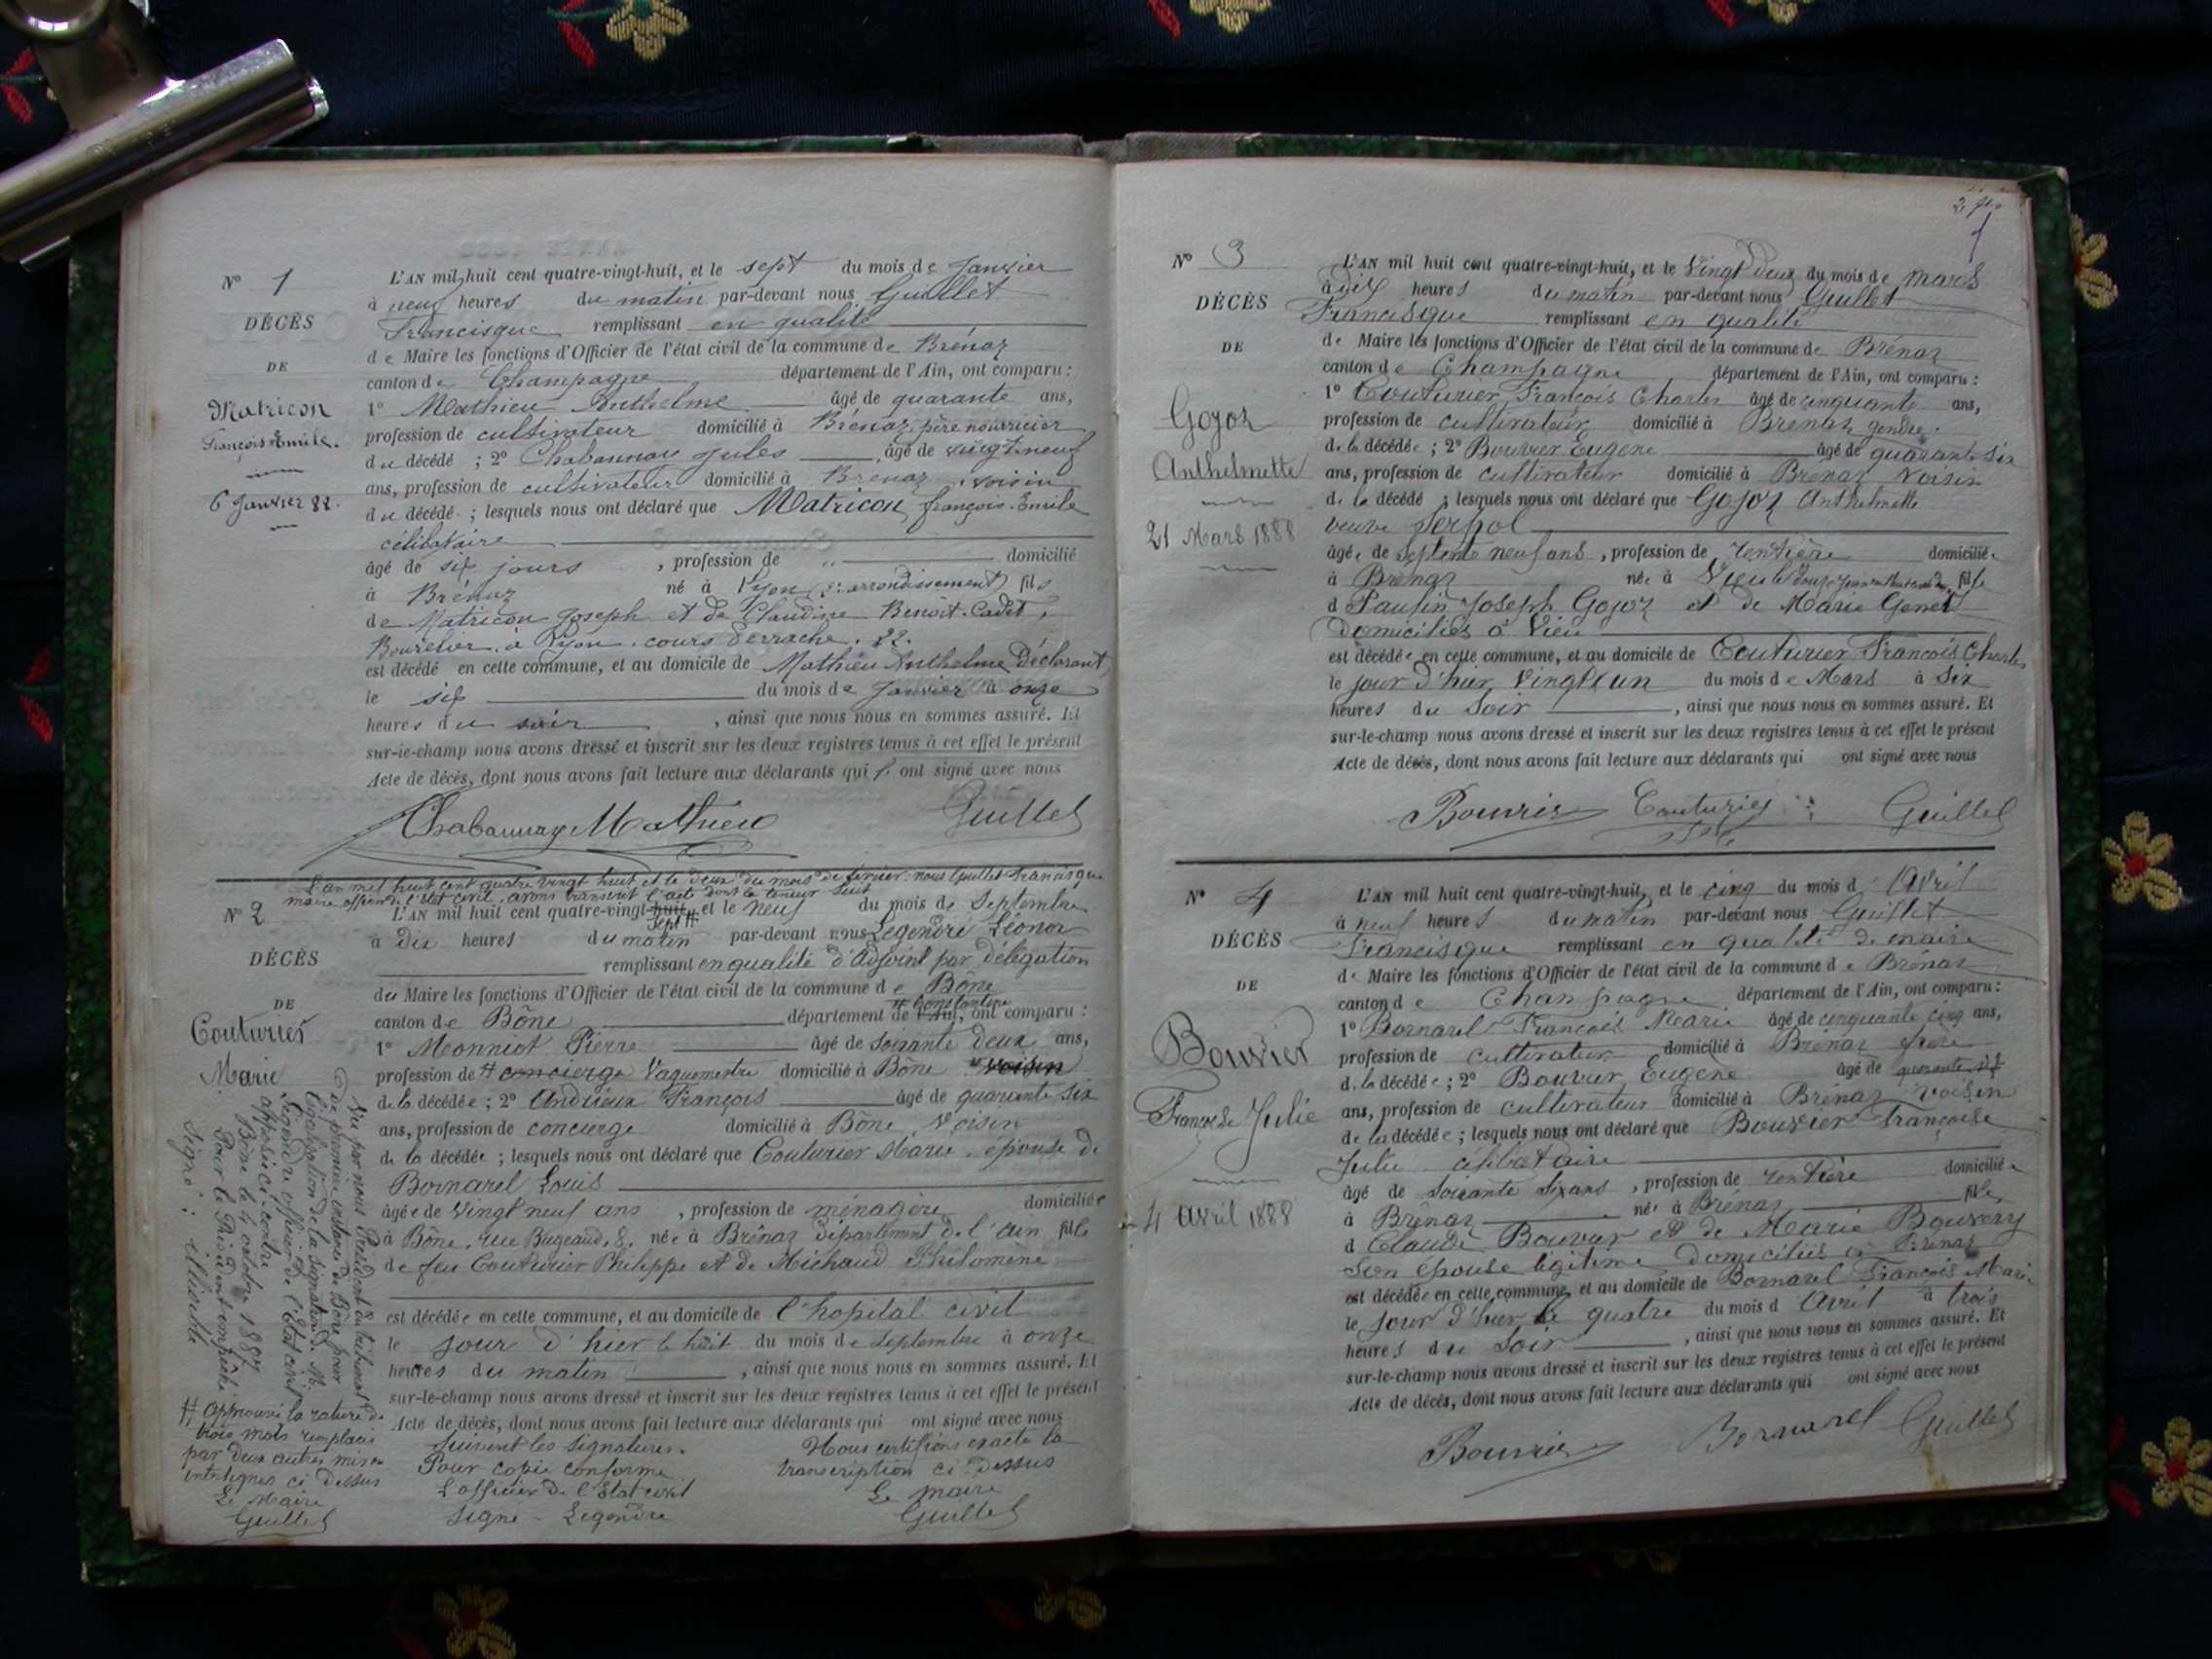 N° 1
DÉCÈS
DE
Matricon
François Emile.
6 Janvier 88.
L'AN mil huit cent quatre-vingt-huit, et le sept du mois de Janvier
à neuf heures du matin par-devant nous Guillet
Francisque remplissant en qualité
de Maire les fonctions d'Officier de l'état civil de la commune de Brénaz
canton de Champagne département de l'Ain, ont comparu :
1° Mathieu Anthelme âgé de quarante ans,
profession de cultivateur domicilié à Brénaz, père nourricier
du décédé ; 2° Chabannay Jules âgé de vingt-neuf
ans, profession de cultivateur domicilié à Brénaz voisin
du décédé ; lesquels nous ont déclaré que Matricon, françois Emile
célibataire
âgé de six jours , profession de domicilié
à Brénaz né à Lyon arrondissement) fils
de Matricon Joseph et de Claudine Benoit-Cadet,
Bourelier, à Lyon, cours 22.
est décédé en cette commune, et au domicile de Mathieu Anthelme Déclarant
le six du mois de Janvier à onze
heures du soir , ainsi que nous nous en sommes assuré. Et
sur-le-champ nous avons dressé et inscrit sur les deux registres tenus à cet effet le présent
Acte de décès, dont nous avons fait lecture aux déclarants qui ont signé avec nous
Chabannay Mathieu Guillet
L'an mil huit cent quatre vingt huit et le deux du mois de février, nous Guillet Francisque
maire officier de l'état civil, avons transcrit l'acte dont la teneur suit
N° 2
DÉCÈS
DE
Couturier
Marie
L'AN mil huit cent quatre-vingt-huit, et le neuf du mois de Septembre
sept #
à dix heures du matin par-devant nous Legendre Léonor
remplissant en qualité d'Adjoint par délégation
du Maire les fonctions d'Officier de l'état civil de la commune de Bône
# Constantine
canton de Bône département de l'Ain, ont comparu :
1° Monniot Pierre âgé de soixante deux ans,
profession de # concierge Vaguemestre domicilié à Bône # voisin
de la décédée ; 2° Andrieux François âgé de quarante six
ans, profession de concierge domicilié à Bône, Voisin
de la décédée ; lesquels nous ont déclaré que Couturier Marie, épouse de
Bornarel Louis
âgée de Vingt neuf ans , profession de ménagère domiciliée
à Bône, rue Bugeaud, 8, née à Brénaz département de l'Ain fille
de feu Couturier Philippe et de Michaud Philomène
est décédée en cette commune, et au domicile de l'hopital civil
le jour d'hier le huit du mois de Septembre à onze
heures du matin , ainsi que nous nous en sommes assuré. Et
sur-le-champ nous avons dressé et inscrit sur les deux registres tenus à cet effet le présent
Acte de décès, dont nous avons fait lecture aux déclarants qui ont signé avec nous
Suivent les signatures.
Pour copie conforme
L'officier de l'Etat civil
Signé - Legendre
Nous certifions exacte la
transcription ci-dessus
Le maire
Guillet
Vu par nous Président du tribunal
de première instance de Bône pour
légalisation de la signature de M.
Legendre officier de l'Etat civil
apposée ci-contre
Bône le octobre 1887
Pour le Président empêché
Signé : illisible
# Approuvé la rature de
trois mots remplacés
par deux autres mis en
interlignes ci dessus
Le Maire
Guillet
N° 3
DÉCÈS
DE
Gojoz
Anthelmette
21 Mars 1888
L'AN mil huit cent quatre-vingt-huit, et le Vingt deux du mois de mars
à dix heures du matin par-devant nous Guillet
Francisque remplissant en qualité
de Maire les fonctions d'Officier de l'état civil de la commune de Brénaz
canton de Champagne département de l'Ain, ont comparu :
1° Couturier François Charles âgé de cinquante ans,
profession de cultivateur domicilié à Brénaz gendre
de la décédée ; 2° Bouvier Eugène âgé de quarante six
ans, profession de cultivateur domicilié à Brénaz Voisin
de la décédé ; lesquels nous ont déclaré que Gojoz Anthelmette
veuve Serpol
âgée de septante neuf ans , profession de rentière domiciliée
à Brénaz née à Vieu fille
d Paulin Joseph Gojoz et de Marie Genet
Domiciliés à Vieu
est décédée en cette commune, et au domicile de Couturier François Charles
le jour d'hier Vingt un du mois de Mars à Six
heures du Soir , ainsi que nous nous en sommes assuré. Et
sur-le-champ nous avons dressé et inscrit sur les deux registres tenus à cet effet le présent
Acte de décès, dont nous avons fait lecture aux déclarants qui ont signé avec nous
Bouvier Couturier Guillet
N° 4
DÉCÈS
DE
Bouvier
Françoise Julie
4 Avril 1888
L'AN mil huit cent quatre-vingt-huit, et le cinq du mois d Avril
à neuf heures du matin par-devant nous Guillet
Francisque remplissant en qualité de maire
de Maire les fonctions d'Officier de l'état civil de la commune de Brénaz
canton de Champagne département de l'Ain, ont comparu :
1° Bornarel François Marie âgé de cinquante cinq ans,
profession de cultivateur domicilié à Brénaz
de la décédée ; 2° Bouvier Eugène âgé de quarante six
ans, profession de cultivateur domicilié à Brénaz voisin
de la décédée ; lesquels nous ont déclaré que Bouvier Françoise
Julie célibataire
âgé de soixante six ans , profession de rentière domiciliée
à Brénaz née à Brénaz fille
d Claude Bouvier et de Marie Bouvery
son épouse légitime domiciliés à Brénaz
est décédée en cette commune, et au domicile de Bornarel François Marie
le jour d'hier le quatre du mois d Avril à trois
heures du Soir , ainsi que nous nous en sommes assuré. Et
sur-le-champ nous avons dressé et inscrit sur les deux registres tenus à cet effet le présent
Acte de décès, dont nous avons fait lecture aux déclarants qui ont signé avec nous
Bouvier Bornarel Guillet